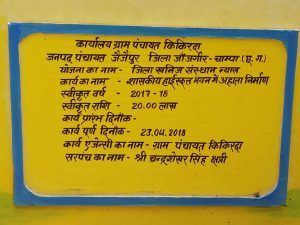 कार्यालय ग्राम पंचायत किकिरदा
जनपद पंचायत जैजैपुर जिला जाँजगीर-चाम्पा (छ.ग.)
योजना का नाम - जिला खनिज संस्थान न्यास
कार्य का नाम - शासकीय हाईस्कूल भवन में अहाता निर्माण
स्वीकृत वर्ष - 2017-18
स्वीकृत राशि - 20.00 लाख
कार्य प्रारंभ दिनाँक-
कार्य पूर्ण दिनाँक- 23.04.2018
कार्य एजेन्सी का नाम - ग्राम पंचायत किकिरदा
सरपंच का नाम - श्री चन्द्रशेखर सिंह क्षत्री